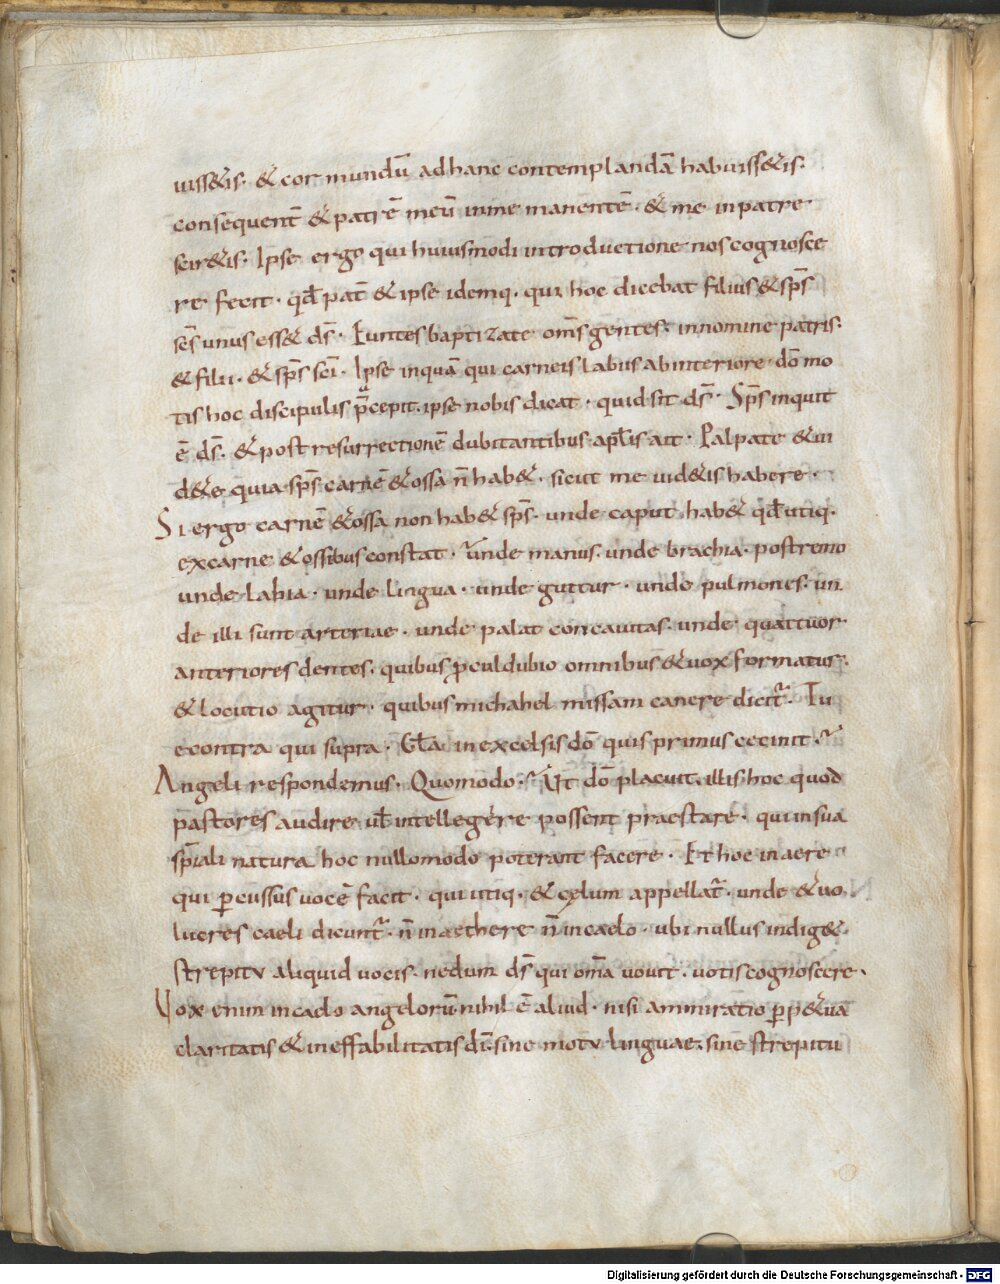 uiss&is. & cor mundū ad hanc contemplandā habuiss&is.
consequent̄ & patrē meū in me manentē. & me in patre
scir&is. Ipse ergo qui huiusmodi introductione nos cognosce
re fecit. qđ pat̄ & ipse idemq. qui hoc dicebat filius & sp̄s
sc̄s unus ess& ds̄. Euntes baptizate om̄s gentes. in nomine patris.
& filii. & sp̄s sc̄i. Ipse inquā qui carneis labiis ab interiore dō mo
tis hoc discipulis p̄cepit. ipse nobis dicat. quid sit ds̄. Sp̄s inquit
ē ds̄. & post resurrectionē dubitantibus apl̄is ait. Palpate & ui
d&e quia sp̄s carnē & ossa n̄ hab&. sicut me uid&is habere.
Si ergo carnē & ossa non hab& sp̄s. unde caput hab& qđ utiq.
ex carne & ossibus constat. unde manus. unde brachia. postremo
unde labia. unde lingua. unde guttur. unde pulmones. un
de illi sunt arteriae. unde palati concauitas. unde quattuor
anteriores dentes. quibus p̄cul dubio omnibus & uox formatur.
& locutio agitur. quibus michahel missam canere dicit̄. Tu
econtra qui supra. Gl̄a in excelsis dō quis primus cecinit.
Angeli respondemus. Quomodo. Ut dō placuit. illis hoc quod
pastores audire ul̄ intellegere possent praestare. qui in sua
sp̄iali natura hoc nullomodo poterant facere. Et hoc in aere
qui p̄cussus uocē facit. qui utiq. & cęlum appellat̄. unde & uo
lucres caeli dicunt̄. n̄ in aethere n̄ in caelo. ubi nullus indig&.
strepitu aliquid uocis. nedum ds̄ qui om̄a nouit. uotis cognoscere.
Uox enim in caelo angelorū nihil ē aliud. nisi ammiratio p̄p&ua
claritatis & ineffabilitatis dī. sine motu linguae. sine strepitu
Digitalisierung gefördert durch die Deutsche Forschungsgemeinschaft - DFG